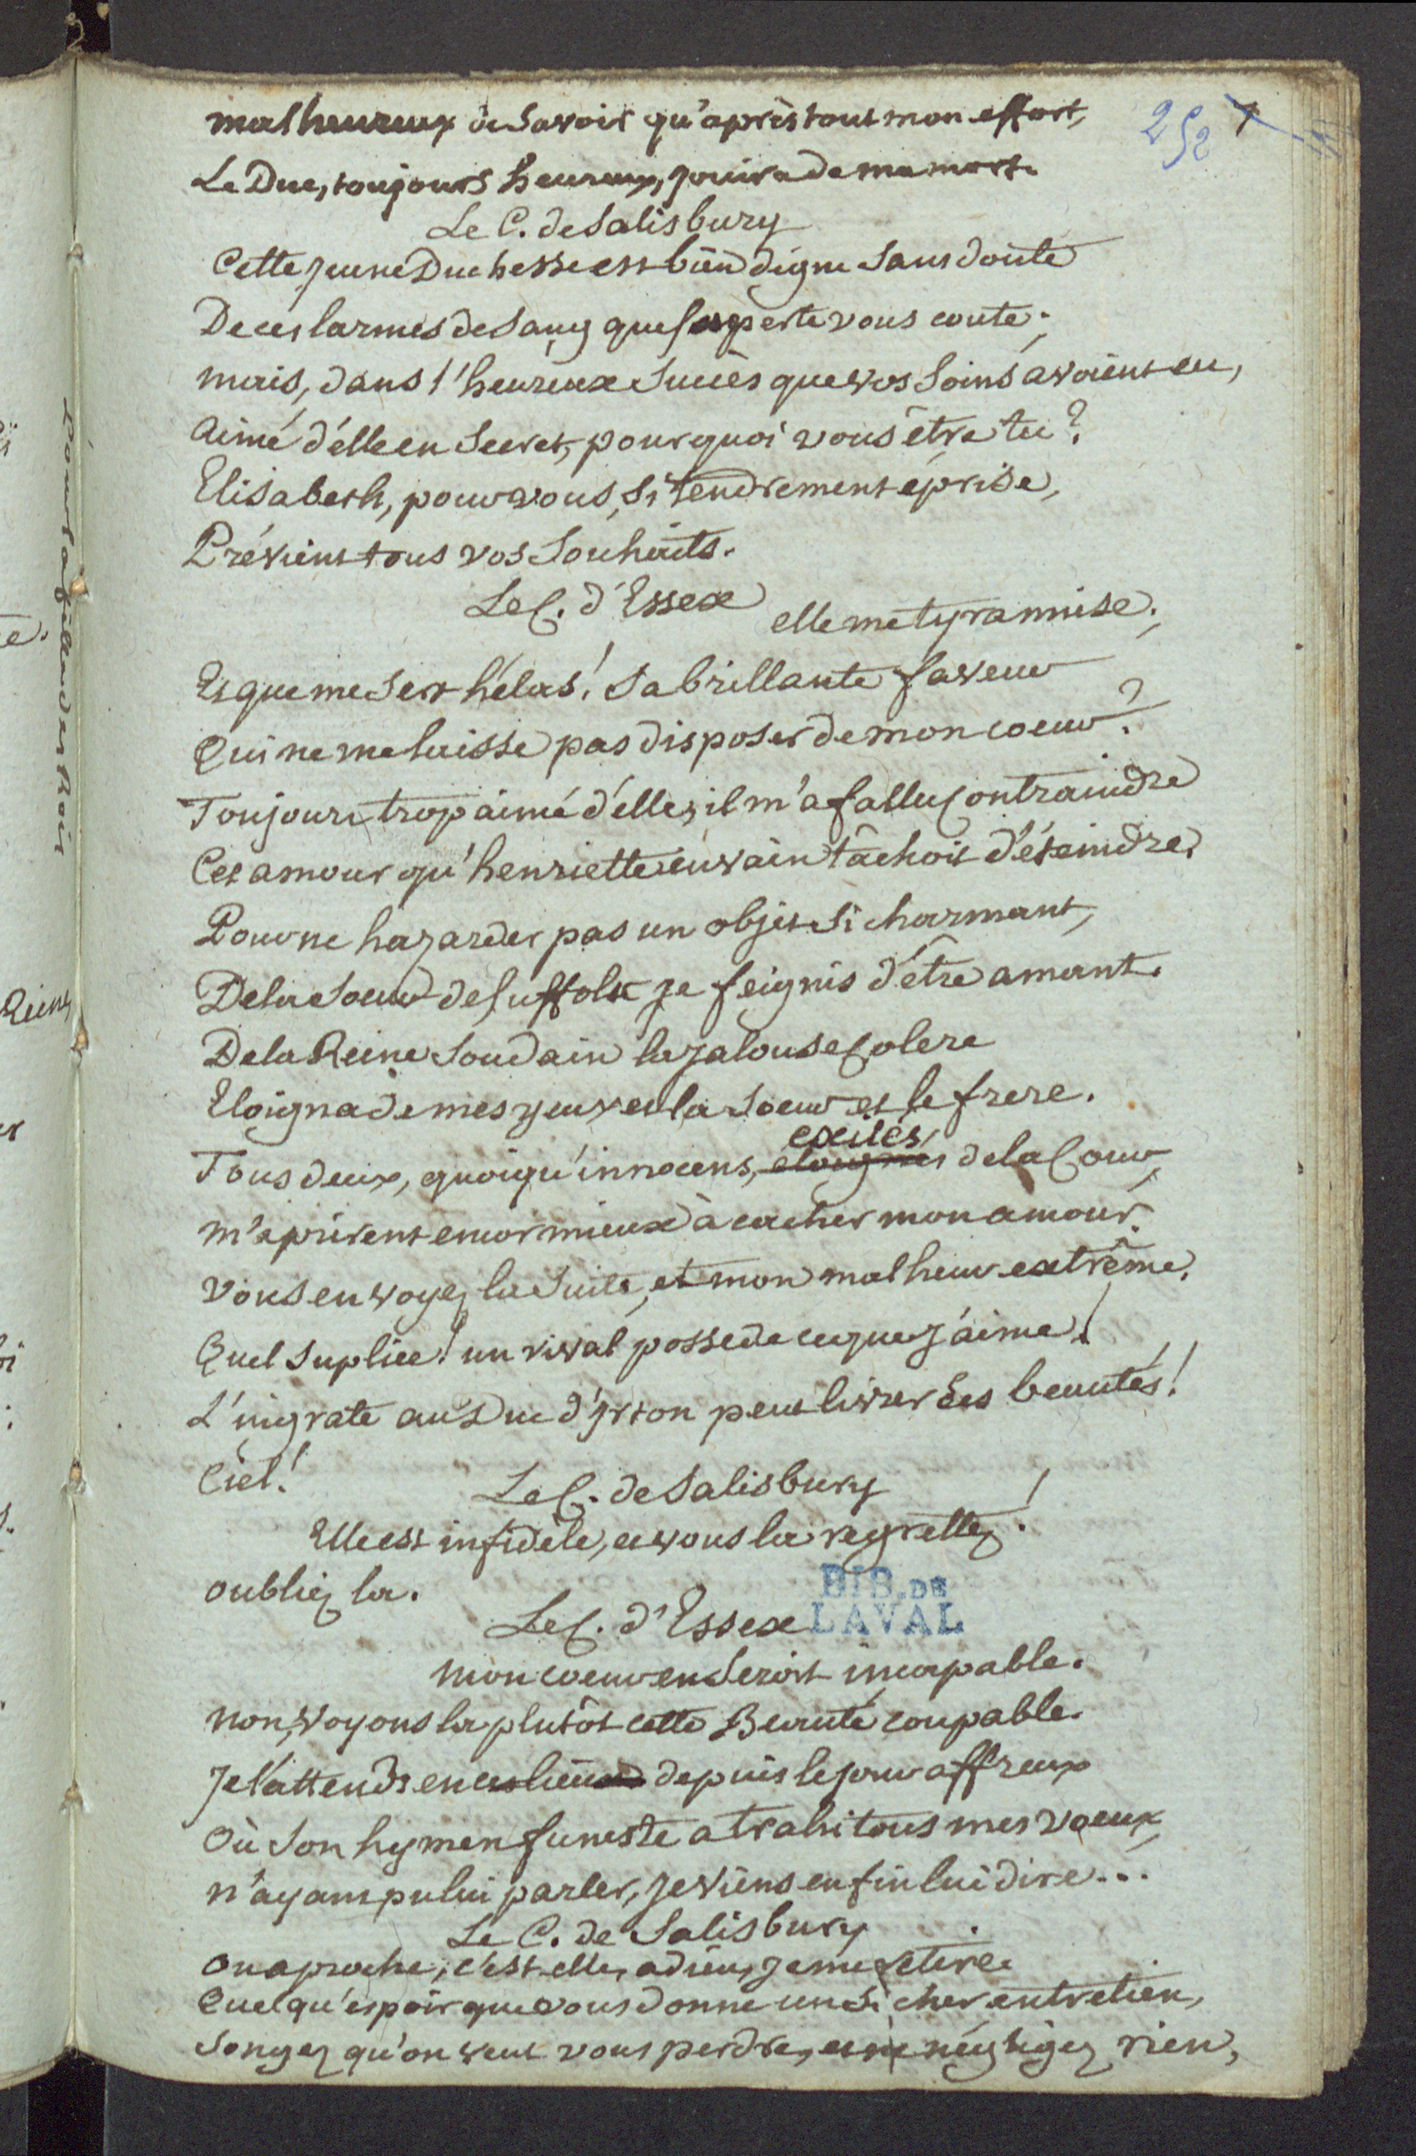 252
malheureux de savoir qu'après tout mon effort,
Le Duc, toujours heureux, jouira de ma mort.
Le C. de Salisbury
Cette jeune Duchesse est bien digne sans doute
De ces larmes de sang que sa perte vous coute;
mais, dans l'heureux succès que vos soins avoient eu,
aimé d'elle en secret, pourquoi vous être tu?
Elisabeth, pour vous, si tendrement éprise,
Prévient tous vos souhaits.
Le C. d'Essex
elle me tyrannise;
Et que me sert hélas! sa brillante faveur
Qui ne me laisse pas disposer de mon coeur?
Toujours trop aimé d'elle, il m'a fallu contraindre
Cet amour qu'henriette en vain tâchoit d'éteindre.
Pour ne hazarder pas un objet si charmant,
De la soeur de suffolk je feignis d'être amant.
De la Reine soudain la jalouse colere
Eloigna de mes yeux et la soeur et le frere.
exilés
Tous deux, quoiqu'innocens, eloignés de la Cour,
m'aprirent encor mieux à cacher mon amour.
vous en voyez la suite, et mon malheur extrême.
Quel suplice! un rival possede ce que j'aime!
L'ingrate au Duc d'Irton peut livrer ses beautés!
Ciel!
Le C. de Salisbury
Elle est infidèle, et vous la regrettez!
oubliez la.
BIB. DE
LAVAL
Le C. d'Essex
mon coeur en seroit incapable.
non, voyons la plutôt cette Beauté coupable.
Je l'attends en ces lieux depuis le jour affreux
Où son hymen funeste a trahi tous mes voeux,
n'ayant pu lui parler, je viens enfin lui dire...
Le C. de Salisbury
on aproche, c'est elle, adieu, je me retire.
Quelqu'espoir que vous donne un si cher entretien,
songez qu'on veut vous perdre, et ne négligez rien,